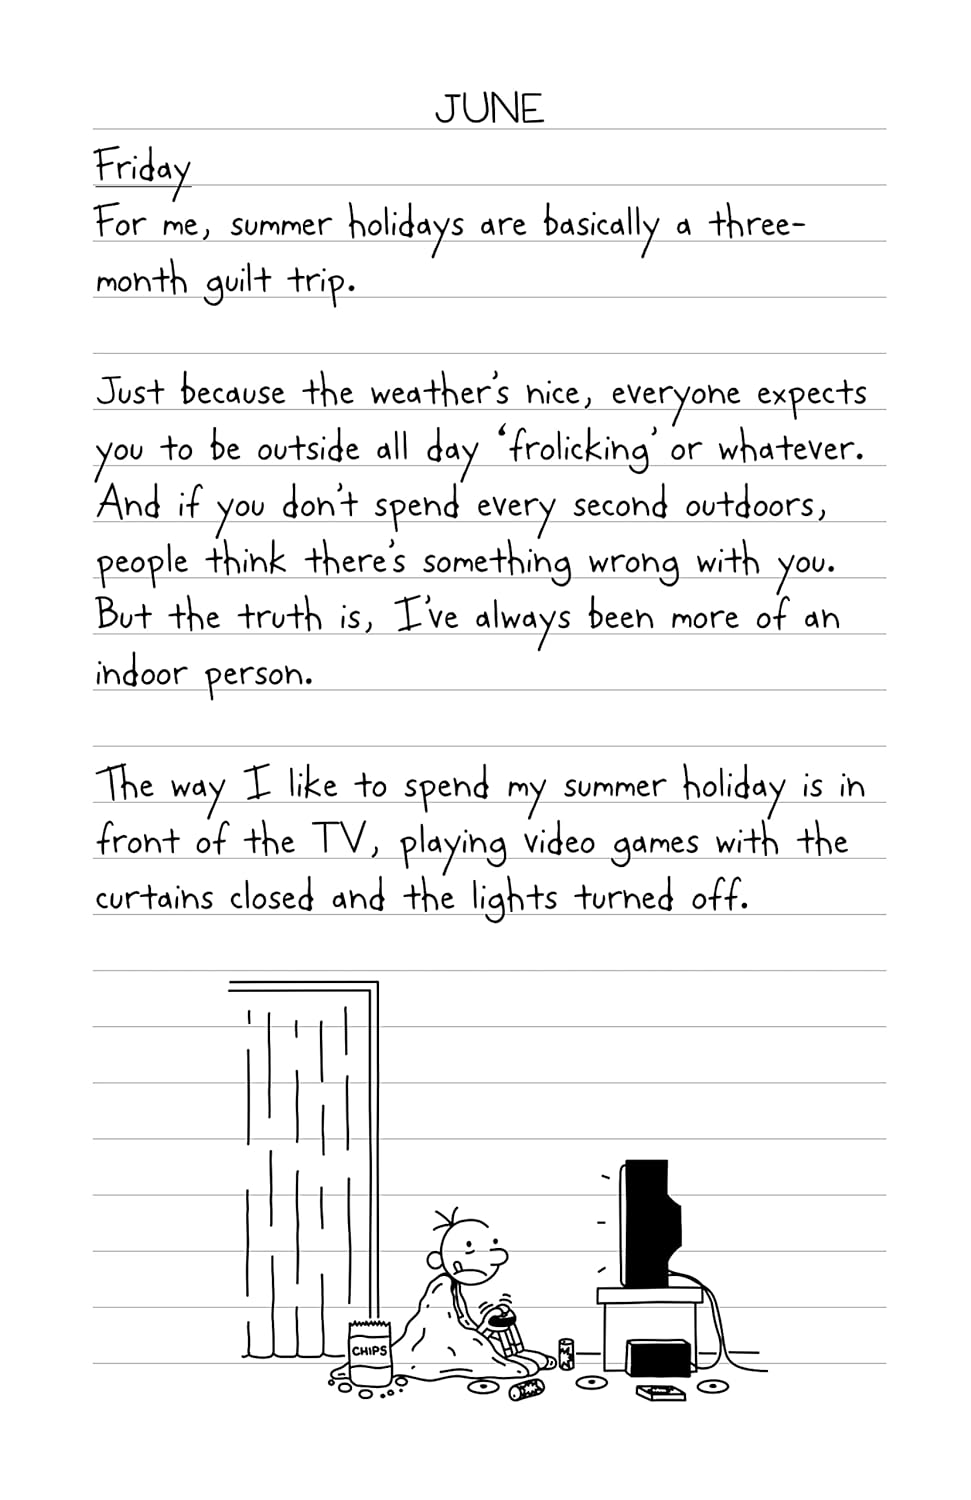 JUNE
Friday
For me, summer holidays are basically a three-
month guilt trip.
Just because the weather's nice, everyone expects
you to be outside all day ‘frolicking’ or whatever.
And if you don't spend every second outdoors,
people think there's something wrong with you.
But the truth is, I've always been more of an
indoor person.
The way I like to spend my summer holiday is in
front of the TV, playing video games with the
curtains closed and the lights turned off.
CHIPS